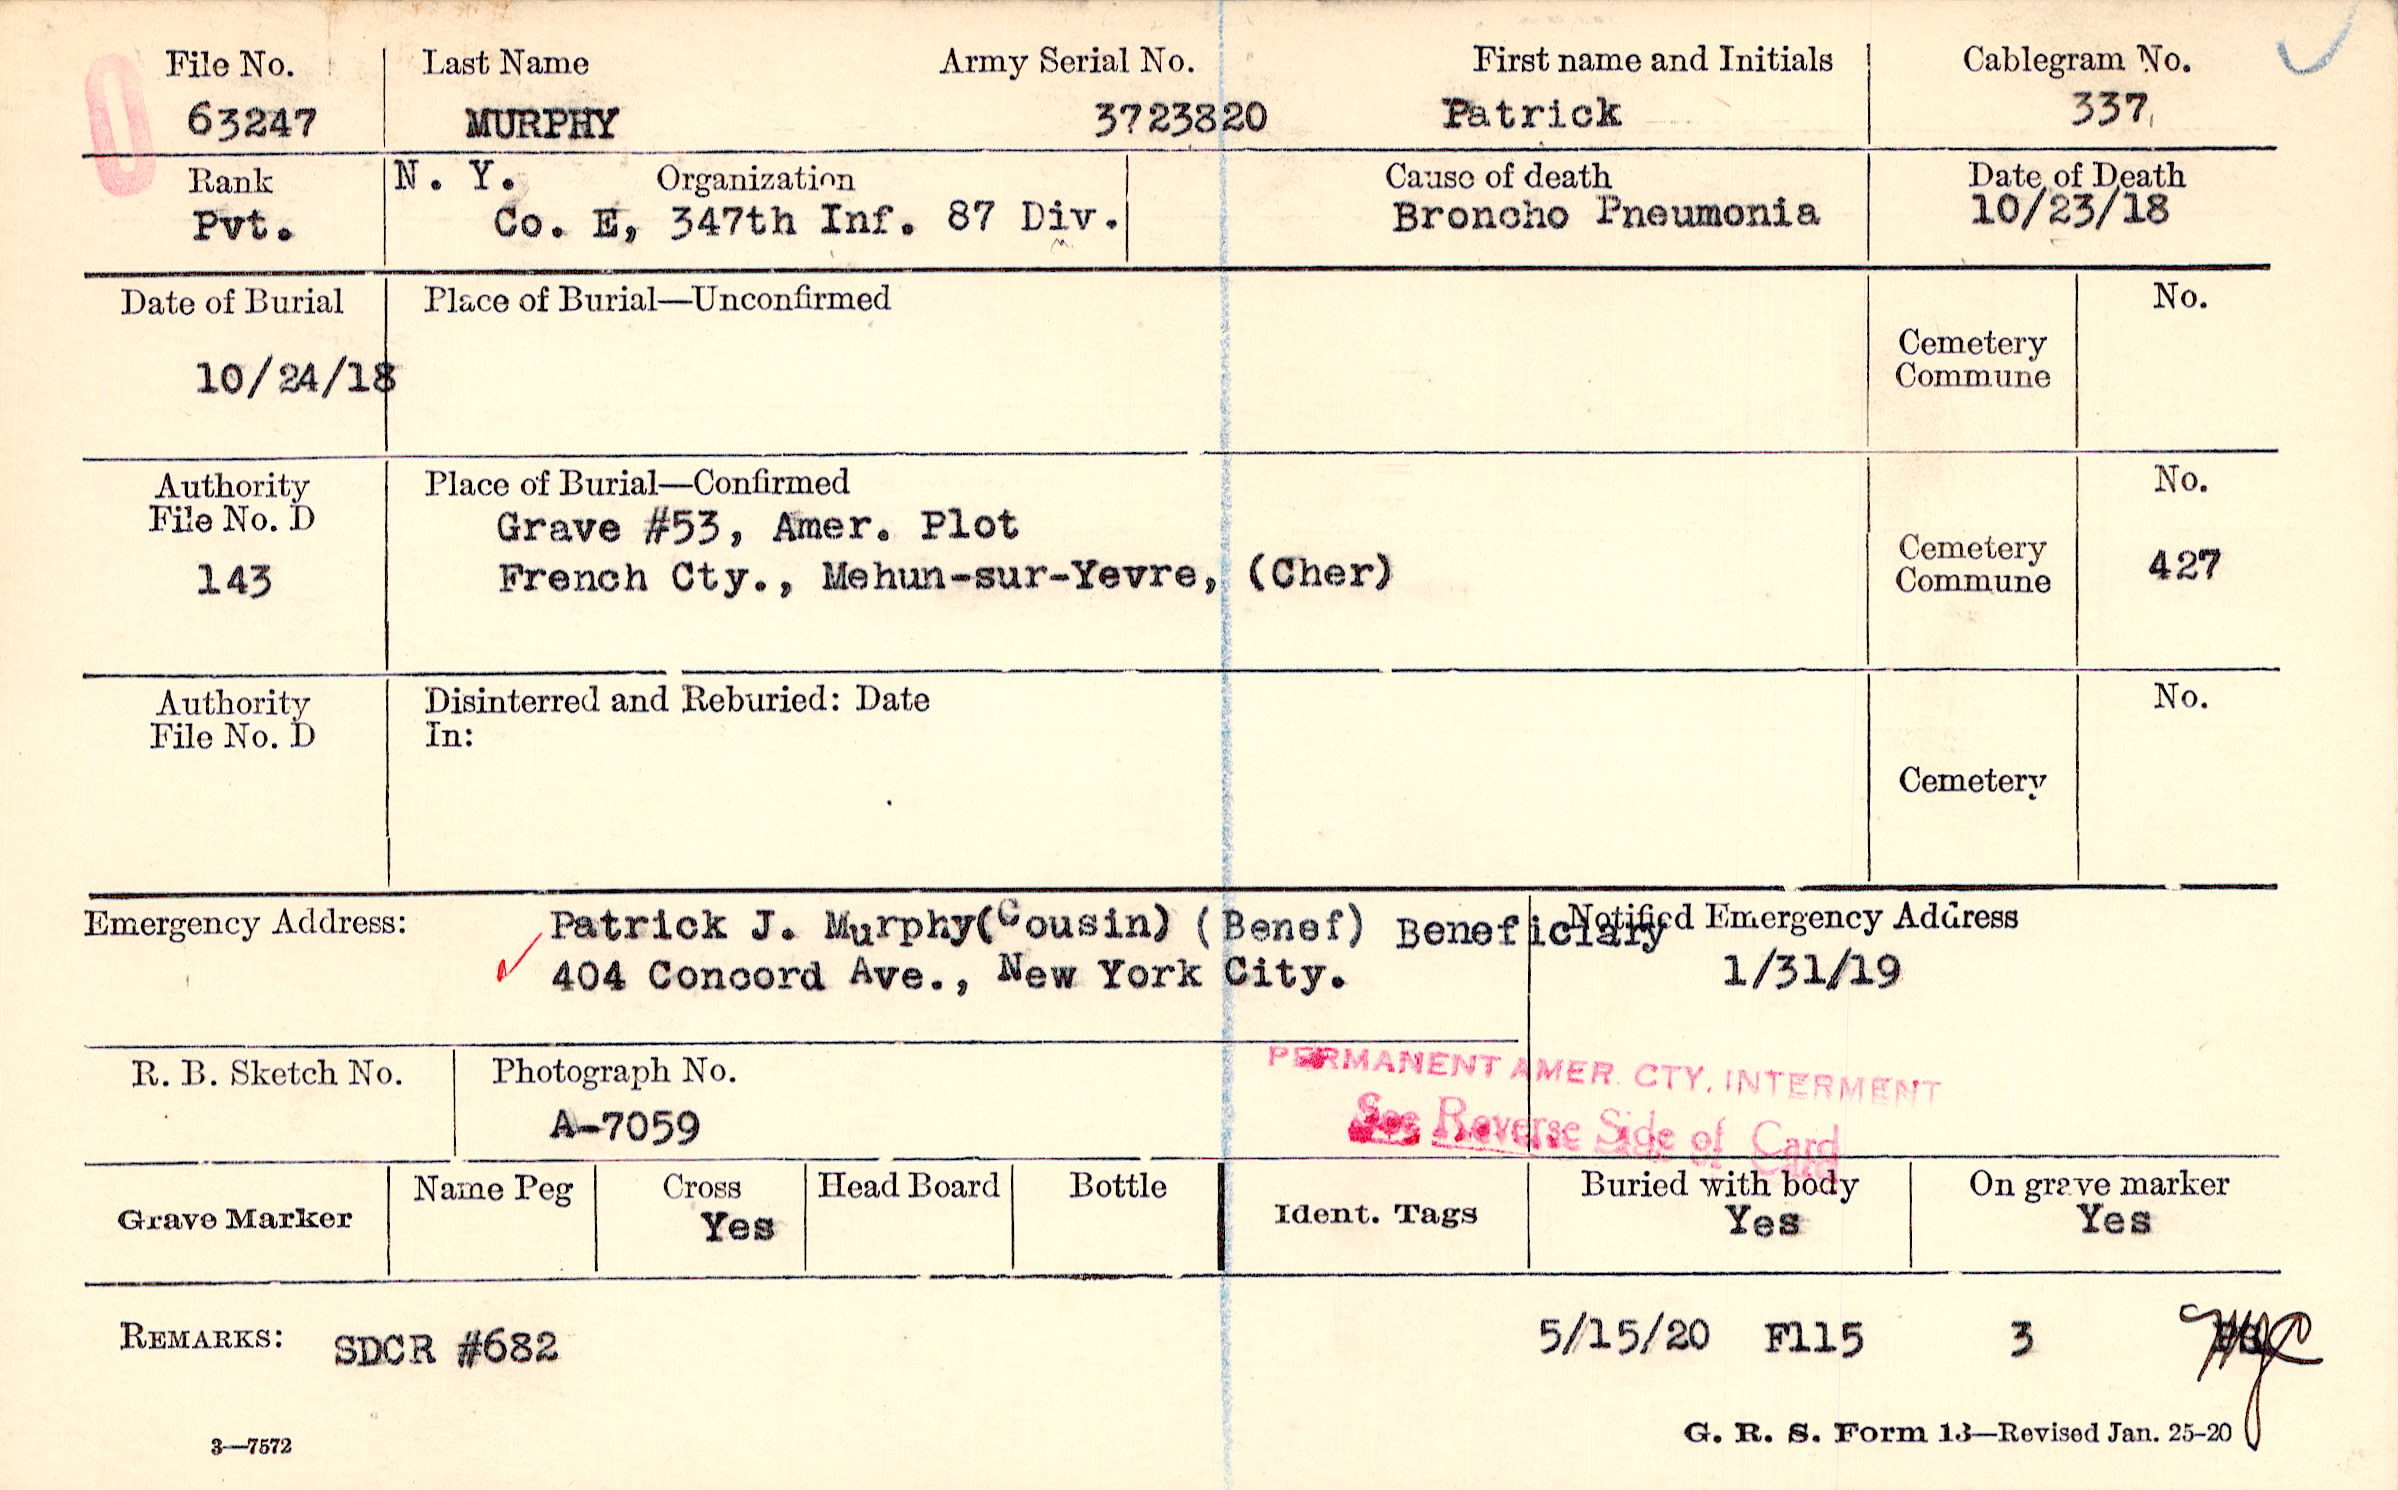 File No. Last Name Army Serial No. First name and Initials Cablegram No.
63247 MURPHY 3723820 Patrick 337
Rank N. Y. Organization Cause of death Date of Death
Pvt. Co. E, 347th Inf. 87 Div. Broncho Pneumonia 10/23/18
Date of Burial Place of Burial—Unconfirmed No.
Cemetery
Commune
10/24/18
Authority Place of Burial—Confirmed No.
File No. D Grave #53, Amer. Plot
143 French Cty., Mehun-sur-Yevre, (Cher) Cemetery 427
Commune
Authority Disinterred and Reburied: Date No.
File No. D In:
Cemetery
Emergency Address: Patrick J. Murphy(Cousin) (Benef) Beneficiary Notified Emergency Address
404 Concord Ave., New York City. 1/31/19
R. B. Sketch No. Photograph No. PERMANENT AMER. CTY. INTERMENT
A-7059 See Reverse Side of Card
Grave Marker Name Peg Cross Head Board Bottle Ident. Tags Buried with body On grave marker
Yes Yes Yes
REMARKS: SDCR #682 5/15/20 F115 3
3—7572 G. R. S. Form 13—Revised Jan. 25-20